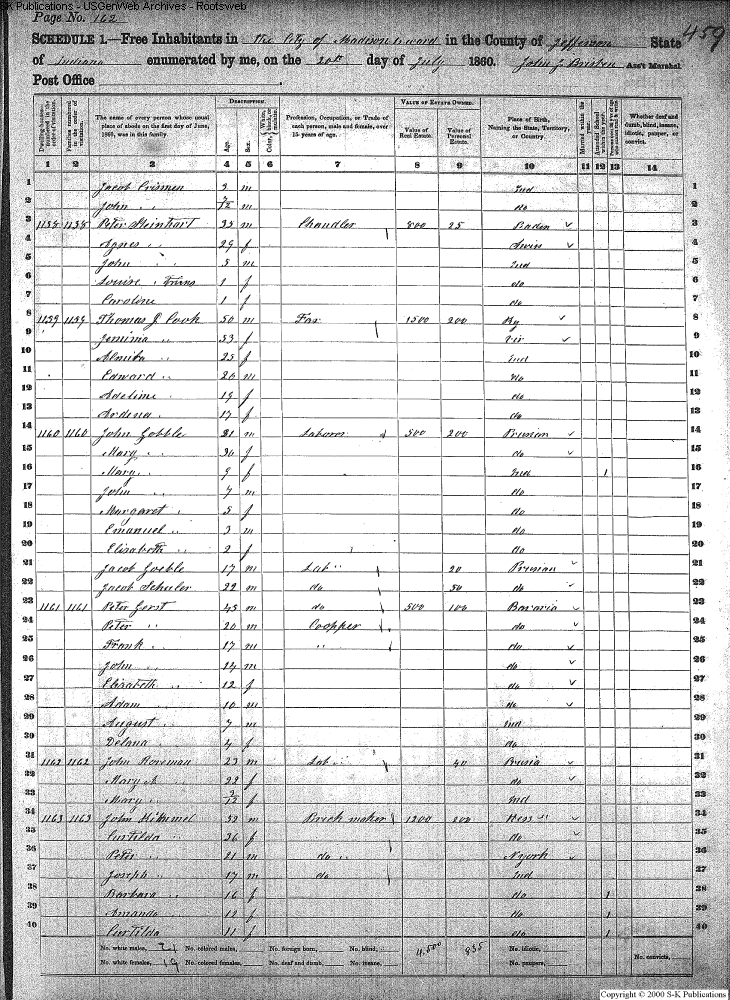 SK Publications - USGenWeb Archives - Rootsweb
Page No. 162
459
SCHEDULE 1.—Free Inhabitants in The City of Madison ward in the County of Jefferson State
of Indiana enumerated by me, on the 20th day of July 1860. John J Ass't Marshal
Post Office
Dwelling-houses numbered in the order of visitation.
Families numbered in the order of visitation.
The name of every person whose usual place of abode on the first day of June, 1860, was in this family.
DESCRIPTION.
Age.
Sex.
Color, White, black, or mulatto.
Profession, Occupation, or Trade of each person, male and female, over 15 years of age.
VALUE OF ESTATE OWNED.
Value of Real Estate.
Value of Personal Estate.
Place of Birth, Naming the State, Territory, or Country.
Married within the
Attended School within the
Whether deaf and dumb, blind, insane, idiotic, pauper, or convict.
1 2 3 4 5 6 7 8 9 10 11 12 13 14
1 Jacob Crismen 2 m Ind 1
2 John " /12 m do 2
3 1158 1158 Peter Steinhart 35 m Chandler 800 25 Baden 3
4 Agnes " 29 f Swis 4
5 John " 5 m Ind 5
6 Louise " Twins 1 f do 6
7 Caroline 1 f do 7
8 1159 1159 Thomas J Cook 50 m Far 1500 200 Ky 8
9 Jemima " 53 f Vir 9
10 " 25 f Ind 10
11 Edward " 20 m do 11
12 Adeline " 19 f do 12
13 Ardena " 17 f do 13
14 1160 1160 John Gobble 31 m Laborer 500 200 Prusian 14
15 Mary " 30 f do 15
16 Mary " 9 f Ind 1 16
17 John " 7 m do 17
18 Margaret " 5 f do 18
19 Emanuel " 3 m do 19
20 Elisabeth " 2 f do 20
21 Jacob Goeble 17 m Lab " 20 Prusian 21
22 Jacob Schuler 22 m do 50 do 22
23 1161 1161 Peter Gerst 45 m do 500 100 Bavaria 23
24 Peter " 20 m Coopper do 24
25 Frank " 17 m " do 25
26 John " 14 m do 26
27 Elizabeth " 12 f do 27
28 Adam " 10 m do 28
29 August " 7 m Ind 29
30 Delana " 4 f do 30
31 1162 1162 John 23 m Lab " 40 Prusia 31
32 Mary A " 22 f do 32
33 Mary " /12 f Ind 33
34 1163 1163 John Himmel 52 m Brick maker 1200 200 Hess " 34
35 Curtilda " 36 f do 35
36 Peter " 21 m do " N york 36
37 Joseph " 17 m do Ind 37
38 Barbara " 16 f do 1 38
39 Amanda " 12 f do 1 39
40 Curtilda 11 f do 1 40
No. white males, 21 No. colored males, No. foreign born, No. blind, 4500 835 No. idiotic,
No. white females, 19 No. colored females, No. deaf and dumb, No. insane, No. paupers, No. convicts,
Copyright © 2000 S-K Publications